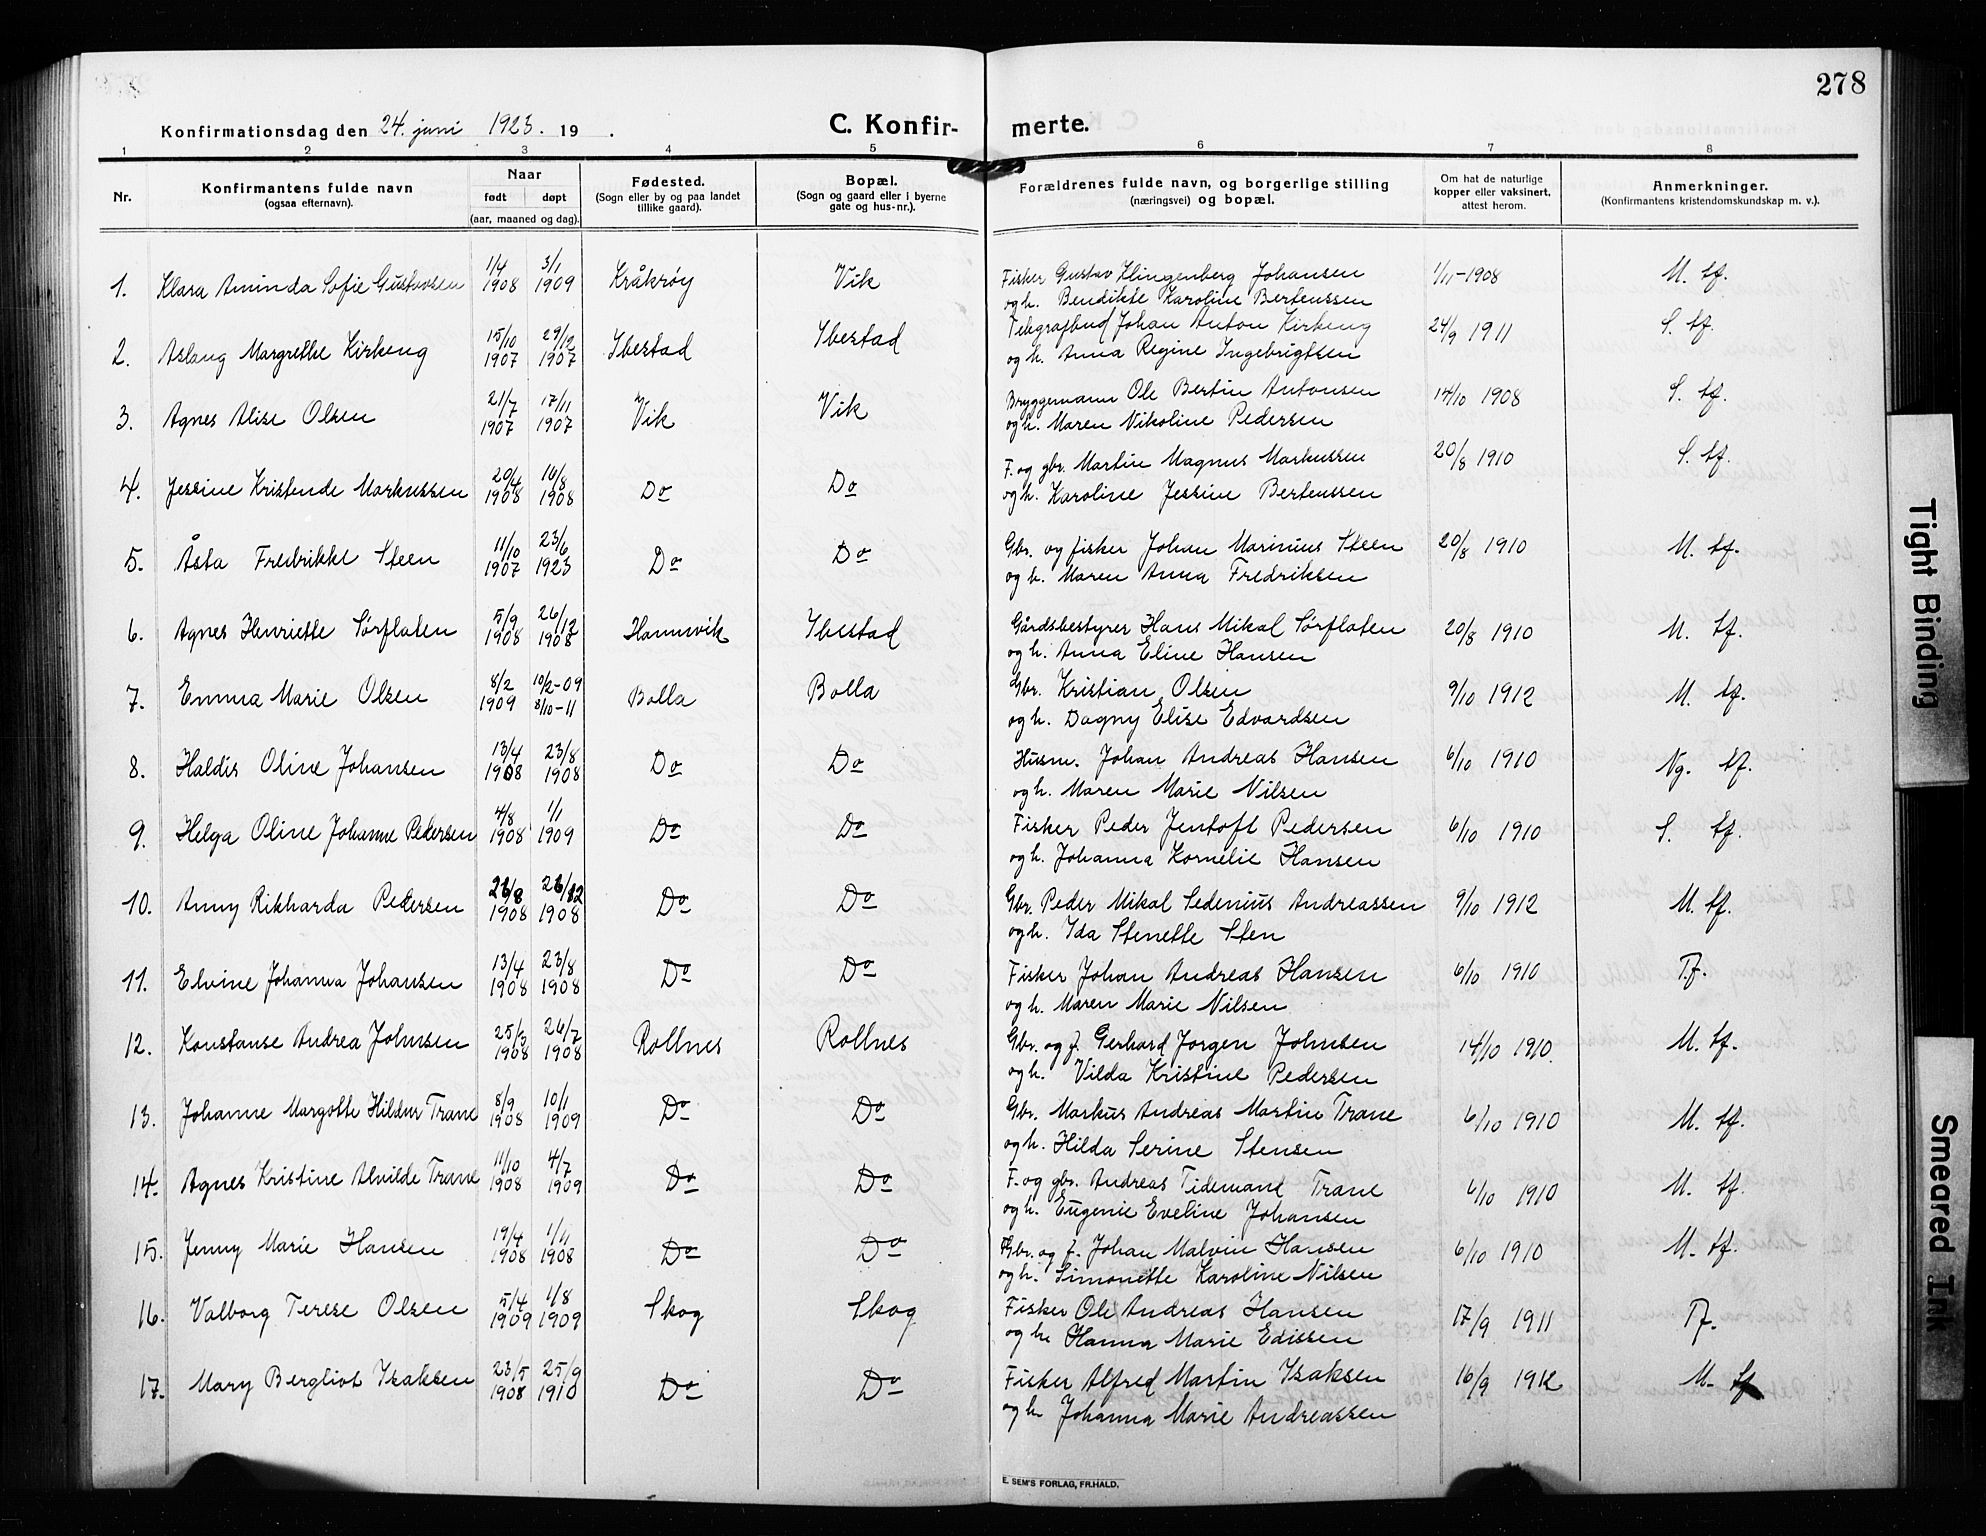 278
Konfirmationsdag den 24. juni 1923. 19 .
C. Konfir- merte.
1 2 3 4 5 6 7 8
Nr.
Konfirmantens fulde navn
(ogsaa efternavn).
Naar
født døpt
(aar, maaned og dag).
Fødested.
(Sogn eller by og paa landet
tillike gaard).
Bopæl.
(Sogn og gaard eller i byerne
gate og hus-nr.).
Forældrenes fulde navn, og borgerlige stilling
(næringsvei) og bopæl.
Om hat de naturlige
kopper eller vaksinert,
attest herom.
Anmerkninger.
(Konfirmantens kristendomskundskap m. v.).
1. Klara Aminda Sofie Gustavsen 1/4 1908 3/1 1909 Kråkrøy Vik Fisker Gustav Klingenberg Johansen 1/11-1908 M. tf.
og h. Bendikte Karoline Berteussen
2. Aslaug Margrethe Kirkeng 15/10 1907 29/12 1907 Ibestad Ibestad Telegrafbud Johan Anton Kirkeng 24/9 1911 S. tf.
og h. Anna Regine Ingebrigtsen
3. Agnes Alise Olsen 21/7 1907 17/11 1907 Vik Vik Bryggemann Ole Bertin Antonsen 14/10 1908 S. tf.
og h. Maren Nikoline Pedersen
4. Jessine Kristende Markussen 20/4 1908 16/8 1908 Do Do F. og gbr. Martin Magnus Markussen 20/8 1910 S. tf.
og h. Karoline Jessine Berteussen
5. Åsta Fredrikke Steen 11/10 1907 23/6 1923 Do Do Gbr. og fisker Johan Marinius Steen 20/8 1910 M. tf.
og h. Maren Anna Fredriksen
6. Agnes Henriette Sørflaten 5/9 1908 26/12 1908 Hamnvik Ibestad Gårdsbestyrer Hans Mikal Sørflaten 20/8 1910 M. tf.
og h. Anna Eline Hansen
7. Emma Marie Olsen 8/2 1909 10/2-09 8/10-11 Bolla Bolla Gbr. Kristian Olsen 9/10 1912 M. tf.
og h. Dagny Elise Edvardsen
8. Haldis Oline Johansen 13/4 1908 23/8 1908 Do Do Husm. Johan Andreas Hansen 6/10 1910 Ng. tf.
og h. Maren Marie Nilsen
9. Helga Oline Johanne Pedersen 4/8 1908 1/1 1909 Do Do Fisker Peder Jentoft Pedersen 6/10 1910 S. tf.
og h. Johanna Kornelie Hansen
10. Anny Rikharda Pedersen /8 1908 /12 1908 Do Do Gbr. Peder Mikal Sedenius Andreassen 9/10 1912 M. tf.
og h. Ida Stenette Sten
11. Elvine Johanna Johansen 13/4 1908 23/8 1908 Do Do Fisker Johan Andreas Hansen 6/10 1910 Tf.
og h. Maren Marie Nilsen
12. Konstanse Andrea Johnsen 25/3 1908 26/7 1908 Rollnes Rollnes Gbr. og f. Gerhard Jørgen Johnsen 14/10 1910. M. tf.
og h. Vilda Kristine Pedersen
13. Johanne Margotte Hildur Trane 8/9 1908 10/1 1909 Do Do Gbr. Markus Andreas Martin Trane 6/10 1910 M. tf.
og h. Hilda Serine Stensen
14. Agnes Kristine Alvilde Trane 11/10 1908 4/7 1909 Do Do F. og gbr. Andreas Tidemand Trane 6/10 1910 M. tf.
og h. Eugenie Eveline Johansen
15. Jenny Marie Hansen 19/4 1908 1/11 1908 Do Do Gbr. og f. Johan Malvin Hansen 6/10 1910 M. tf.
og h. Simonette Karoline Nilsen
16. Valborg Terese Olsen 5/4 1909 1/8 1909 Skog Skog Fisker Ole Andreas Hansen 17/9 1911 Tf.
og h. Hanna Marie Edissen
17. Mary Bergliot Isaksen 23/5 1908 25/9 1910 Do Do Fisker Alfred Martin Isaksen 16/9 1912 M. tf
og h. Johanna Marie Andreassen
E. SEM'S FORLAG, FR.HALD.
Tight Binding
Smeared Ink